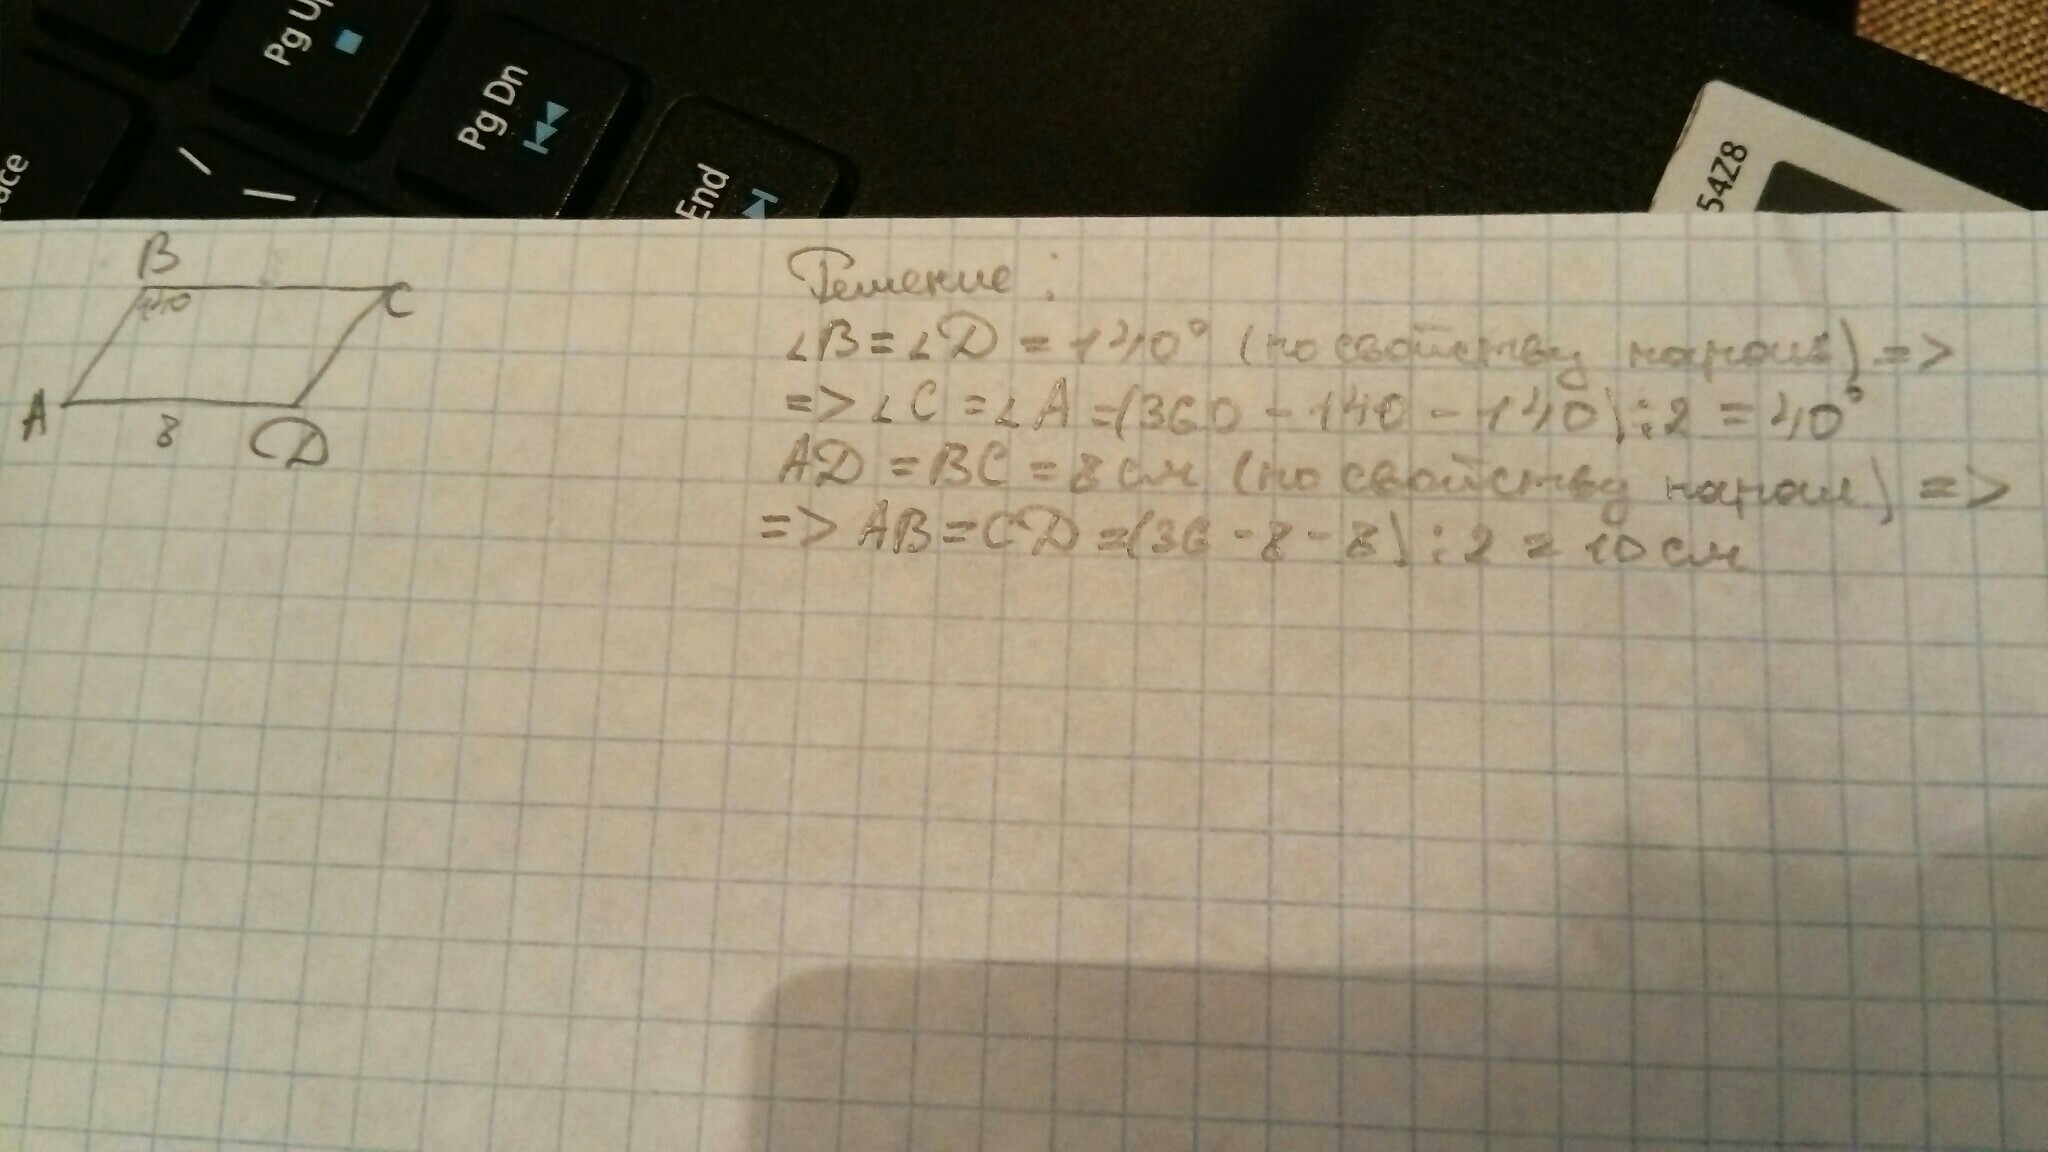 Pg Up
Pg Dn
End
ace
/
\
54Z8
B
140
C
A
8
D
Решение:
∠B = ∠D = 140° (по свойству парал) =>
=> ∠C = ∠A = (360 - 140 - 140) : 2 = 40°
AD = BC = 8 см (по свойству парал) =>
=> AB = CD = (36 - 8 - 8) : 2 = 10 см